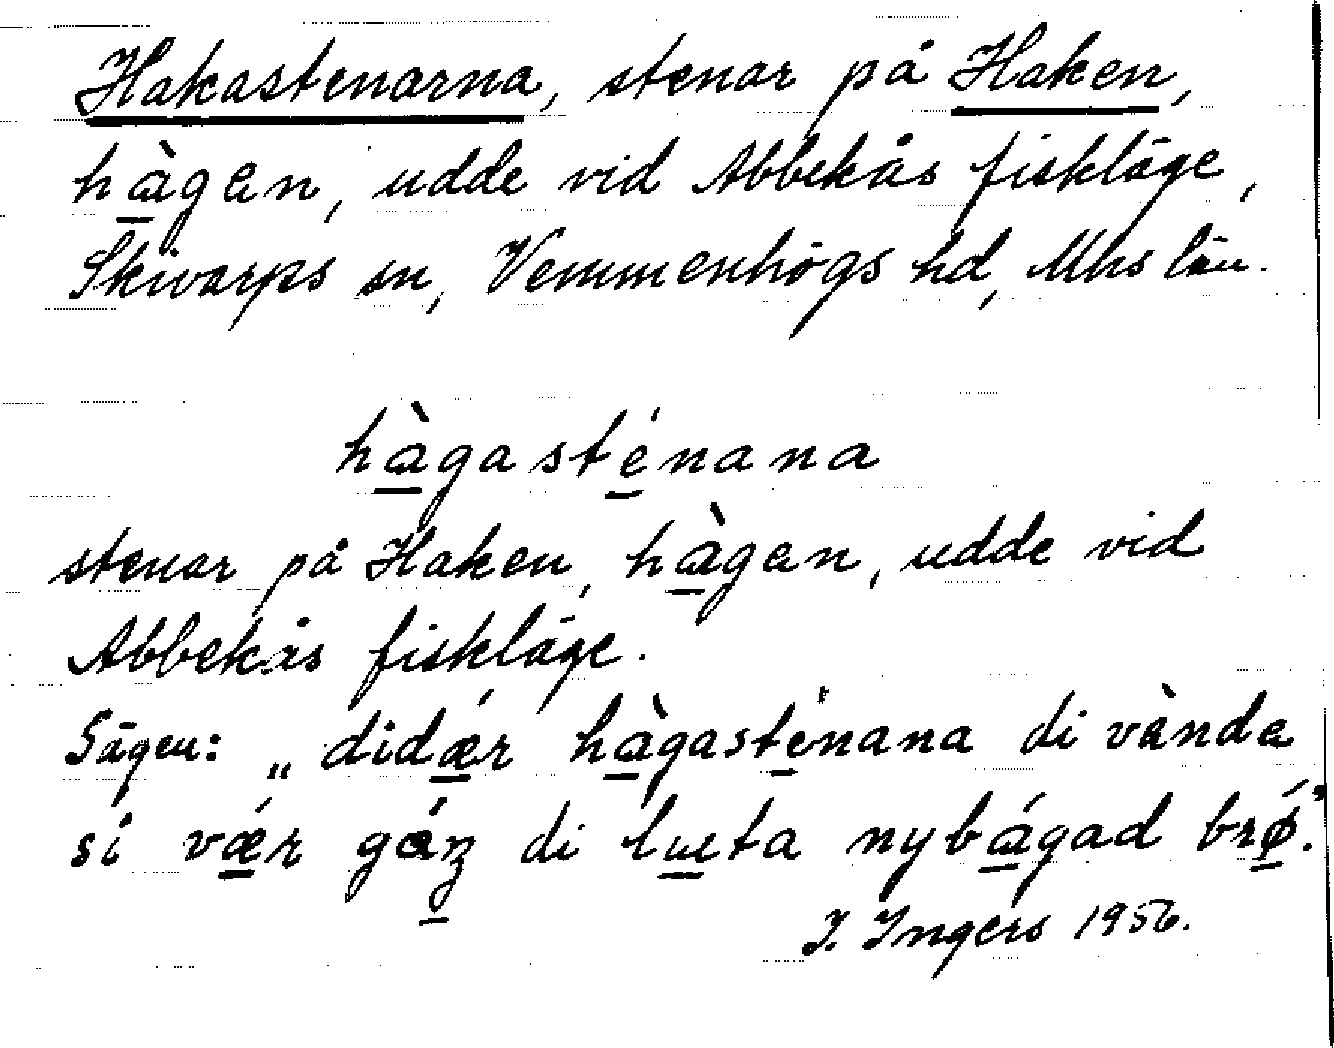 Hakastenarna, stenar på Haken,
hàgen, udde vid Abbekås fiskläge,
Skivarps sn, Vemmenhögs hd, Mhs län.
hàgasténana
stenar på Haken, hàgen, udde vid
Abbekås fiskläge.
Sägen: „didǽr hàgasténana di vànda
sí vǽr gáŋ di luta nybágad brǿ."
I. Ingers 1956.